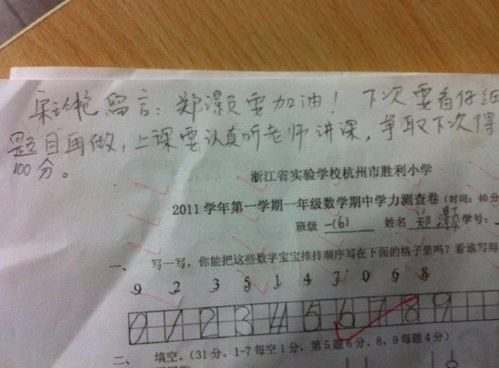 留言：郑灏要加油！下次要看仔细
题目再做，上课要认真听老师讲课，争取下次得
100分。
浙江省实验学校杭州市胜利小学
2011学年第一学期一年级数学期中学力测查卷（时间：40分
班级 一(6) 姓名 郑灏 学号：
一、 写一写，你能把这些数字宝宝排排顺序写在下面的格子里吗？看谁写得
9 2 3 5 1 4 7 0 6 8
0 1 2 3 4 5 6 7 8 9
二、 填空。（31分。1-7每空1分，第5题6分，8、9每题4分）